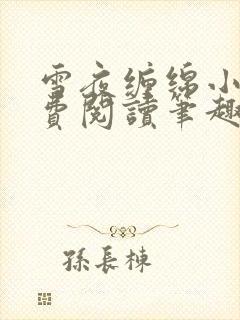 雪夜缠绵小
費閱讀筆趣
孫長棟